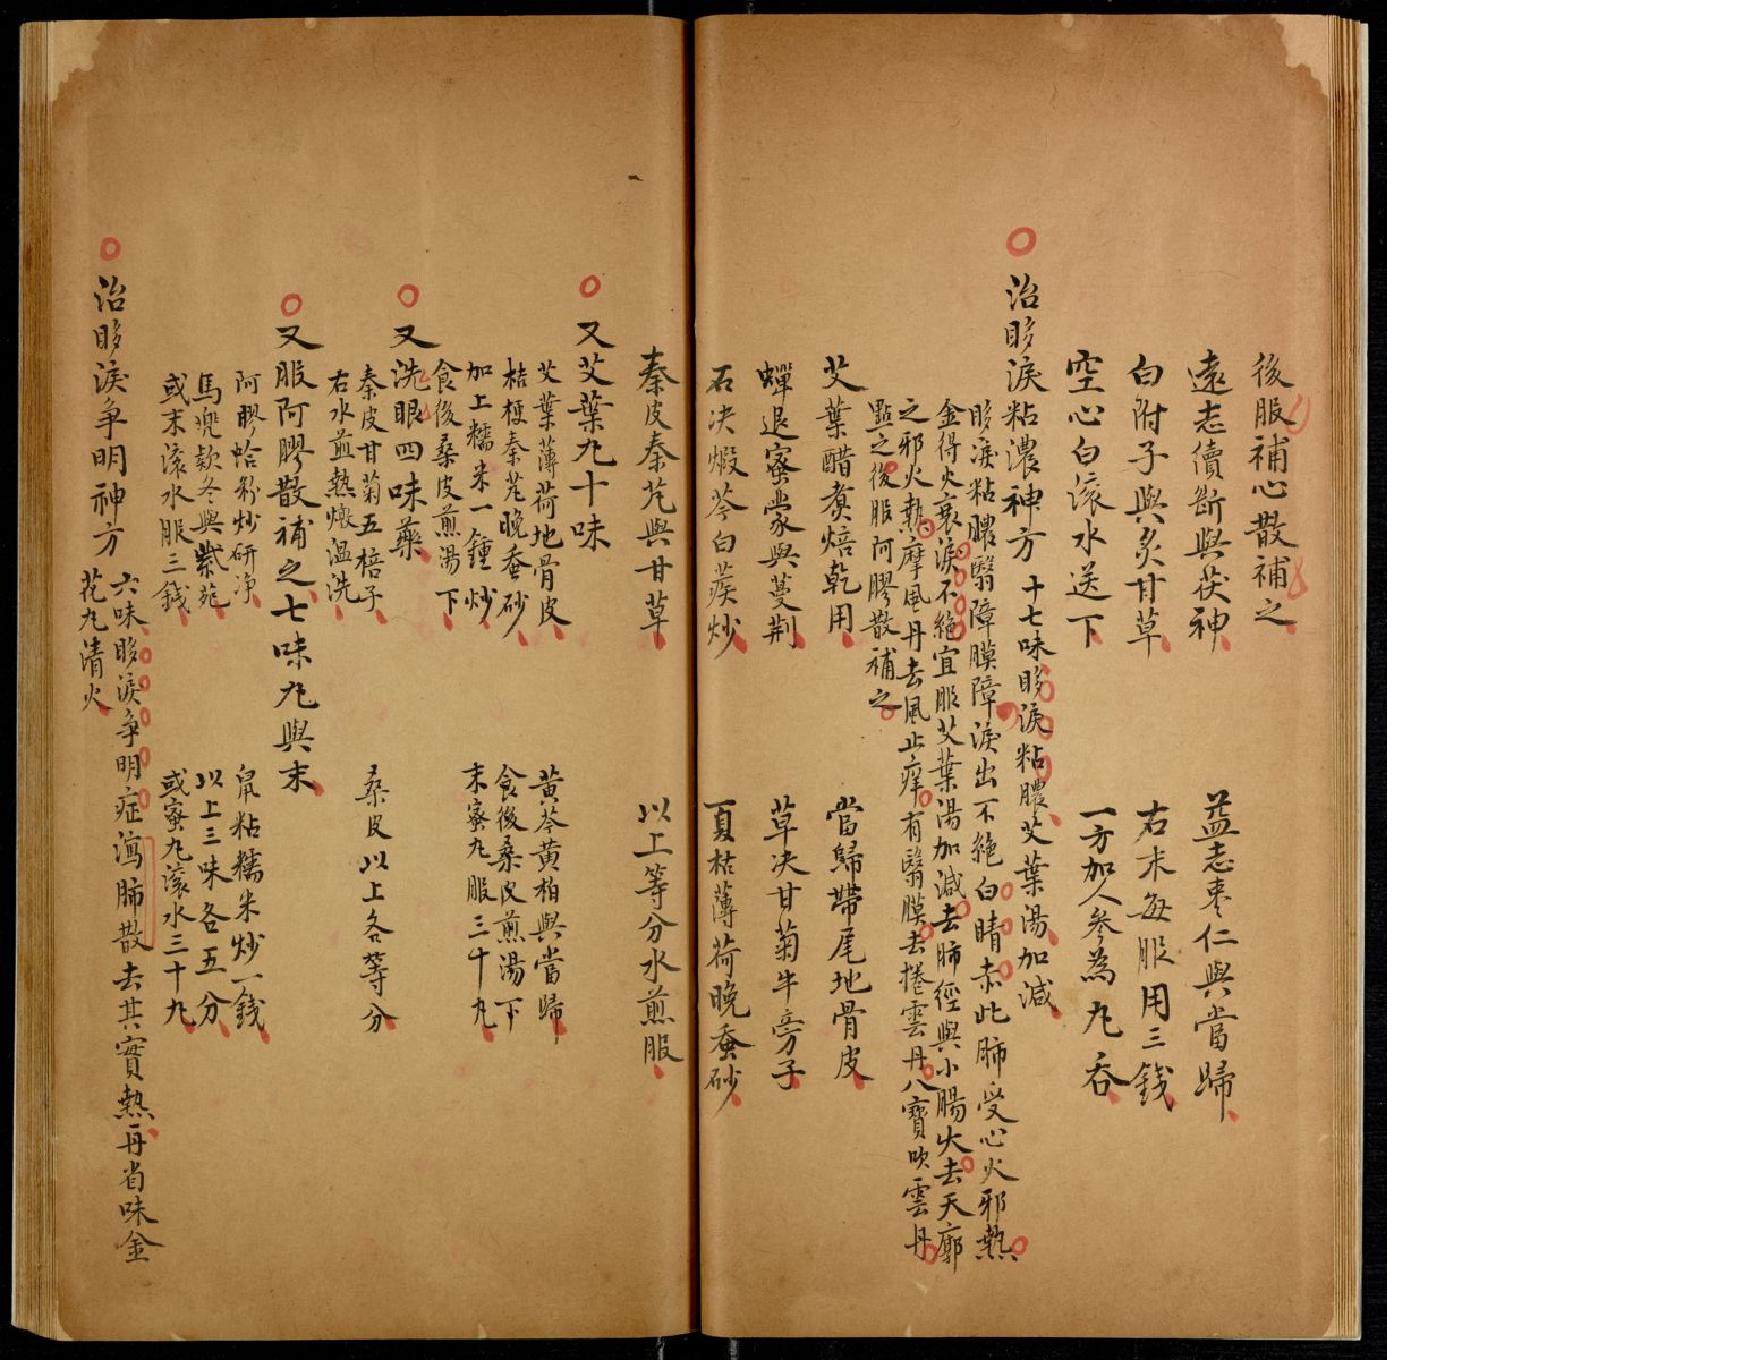 後服補心散補之
遠志續斷與茯神　益志棗仁與當歸
白附子與炙甘草　右末每服用三錢
空心白滚水送下　一方加人參為丸吞
治眵淚粘濃神方　十七味眵淚粘膿艾葉湯加減
眵淚粘膿翳障膜障淚出不絶白睛赤此肺受心火邪熱
金得火衰淚不絶宜服艾葉湯加減去肺經與小腸火去天廓
之邪火熱摩風丹去風止痒有翳膜去捲雲丹八寶吹雲丹
點之後服阿膠散補之
艾葉醋煑焙乾用　當歸帶尾地骨皮
蟬退蜜蒙與蔓荆　草决甘菊牛旁子
石决煅苓白蒺炒　夏枯薄荷晚蚕砂
秦皮秦艽與甘草　以上等分水煎服
又艾葉丸十味
艾葉薄荷地骨皮　黃芩黃柏與當歸
桔梗秦艽晚蚕砂　食後桑皮煎湯下
加上糯米一鍾炒　末蜜丸服三十丸
食後桑皮煎湯下
又洗眼四味藥
秦皮甘菊五棓子　桑皮以上各等分
右水煎熱燉温洗
又服阿膠散補之七味丸與末
阿膠蛤粉炒研净　鼠粘糯米炒一錢
馬兜欵冬與紫菀　以上三味各五分
或末滚水服三錢　或蜜丸滚水三十丸
治眵淚争明神方　六味眵淚争明症瀉肺散去其實熱再省味金
花丸清火